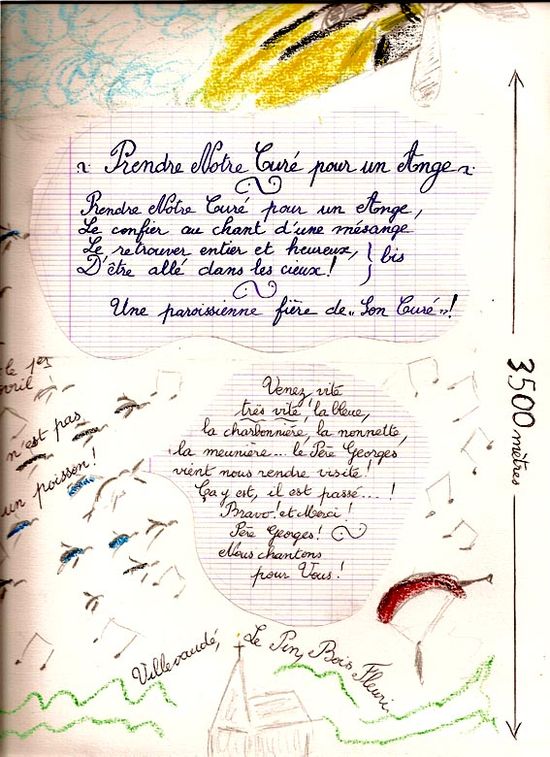 Prendre Notre Curé pour un Ange
Prendre Notre Curé pour un Ange,
Le confier au chant d'une mésange
Le retrouver entier et heureux,
D'être allé dans les cieux! } bis
Une paroissienne fière de "Son Curé"!
le 1er
avril
n'est pas
un poisson!
Venez vite
très vite, la bleue,
la charbonnière, la nonnette,
la meunière... le Père Georges
vient nous rendre visite!
Ça y est, il est passé...!
Bravo! et Merci!
Père Georges!
Nous chantons
pour Vous!
3500 mètres
Villevaudé, Le Pin, Bois Fleuri